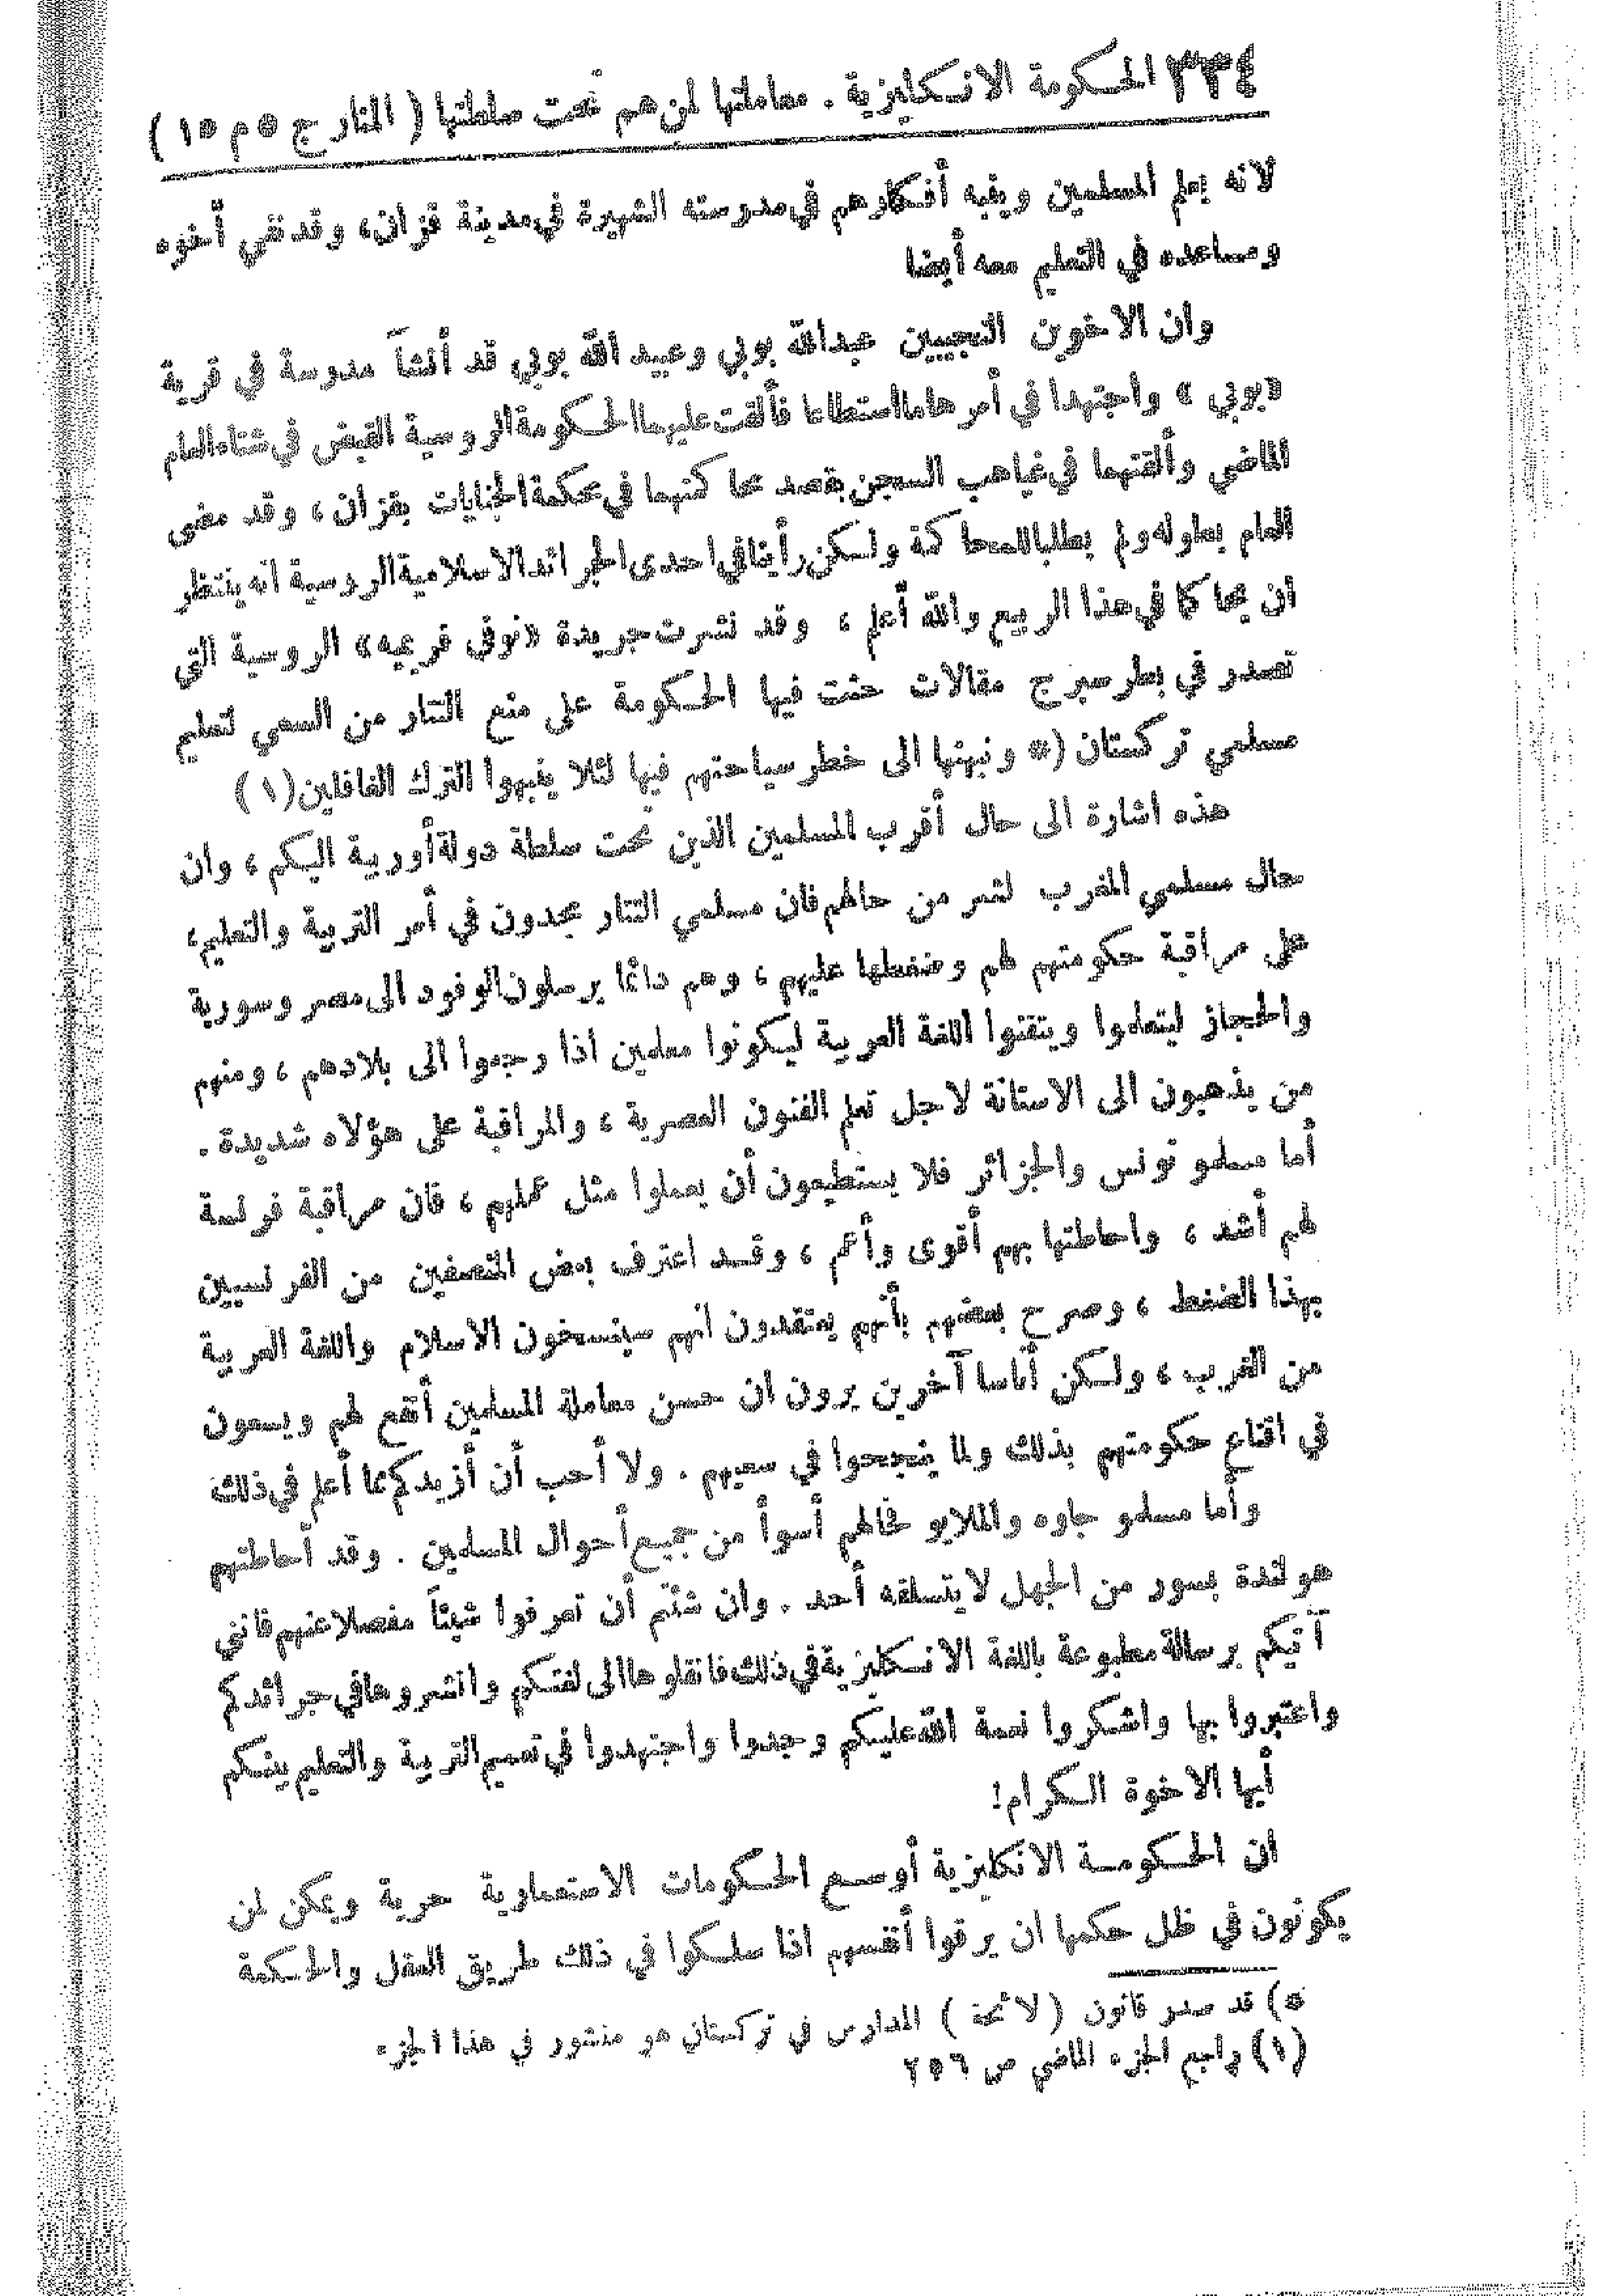 ٣٣٤ الحكومة الانكليزية . معاملتها لمن هم تحت سلطتها ( المنار ج ٥ م ١٥ )
لانه يعلم المسلمين وينبه أفكارهم في مدرسته الشهيرة في مدينة قزان، وقد نفي أخوه
ومساعده في التعليم معه أيضا
وان الاخوين النجيبين عبدالله بوبي وعبيد الله بوبي قد أنشآ مدرسة في قرية
«بوبي » واجتهدا في أمرها ما استطاعا فألقت عليهما الحكومة الروسية القبض في شتاء العام
الماضي وألقتهما في غياهب السجن بقصد محاكمتهما في محكمة الجنايات بقزان ، وقد مضى
العام بطوله ولم يطلبا للمحاكمة ولكن رأينا في احدى الجرائد الاسلامية الروسية انه ينتظر
ان يحاكما في هذا الربيع والله أعلم ، وقد نشرت جريدة «نوفي فريميه» الروسية التي
تصدر في بطرسبرج مقالات حثت فيها الحكومة على منع التتار من السعي لتعليم
مسلمي تركستان (* ونبهتها الى خطر سياحتهم فيها لئلا ينبهوا الترك الغافلين (١)
هذه اشارة الى حال أقرب المسلمين الذين تحت سلطة دولة أوربية اليكم ، وان
حال مسلمي المغرب لشر من حالهم فان مسلمي التتار مجدون في أمر التربية والتعليم،
على مراقبة حكومتهم لهم وضغطها عليهم ، وهم دائما يرسلون الوفود الى مصر وسورية
والحجاز ليتعلموا ويتقنوا اللغة العربية ليكونوا معلمين اذا رجعوا الى بلادهم ، ومنهم
من يذهبون الى الاستانة لاجل تعلم الفنون العصرية ، والمراقبة على هؤلاء شديدة .
أما مسلمو تونس والجزائر فلا يستطيعون أن يعملوا مثل عملهم ، فان مراقبة فرنسة
لهم أشد ، واحاطتها بهم أقوى وأعم ، وقد اعترف بعض المنصفين من الفرنسيين
بهذا الضغط ، وصرح بعضهم بأنهم يعتقدون انهم سينسخون الاسلام واللغة العربية
من الغرب ، ولكن أناسا آخرين يرون ان حسن معاملة المسلمين أنفع لهم ويسعون
في اقناع حكومتهم بذلك ولما ينجحوا في سعيهم . ولا أحب أن أزيدكم عما أعلم في ذلك
وأما مسلمو جاوه والملايو فحالهم أسوأ من جميع أحوال المسلمين . وقد أحاطتهم
هولندة بسور من الجهل لا يتسلقه أحد . وان شئتم أن تعرفوا شيئاً مفصلا عنهم فانني
آتيكم برسالة مطبوعة باللغة الانكليزية في ذلك فانقلوها الى لغتكم وانشروها في جرائدكم
واعتبروا بها واشكروا نعمة الله عليكم وجدوا واجتهدوا في تعميم التربية والتعليم بينكم
أيها الاخوة الكرام!
ان الحكومة الانكليزية أوسع الحكومات الاستعمارية حرية ويمكن لمن
يكونون في ظل حكمها ان يرقوا أنفسهم اذا سلكوا في ذلك طريق العقل والحكمة
*) قد صدر قانون ( لائحة ) المدارس في تركستان هو منشور في هذا الجزء
(١) راجع الجزء الماضي ص ٢٥٦